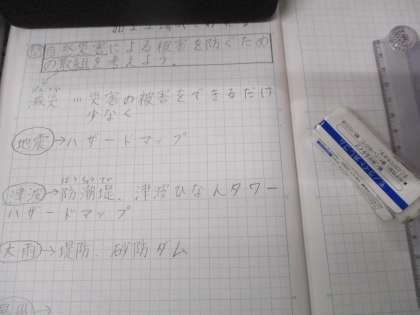 自然災害による被害を防ぐため
の取組を考えよう。
げんさい
減災…災害の被害をできるだけ
少なく
地震→ハザードマップ
ぼうちょうてい
津波→防潮堤、津波ひなんタワー
ハザードマップ
大雨→堤防、砂防ダム